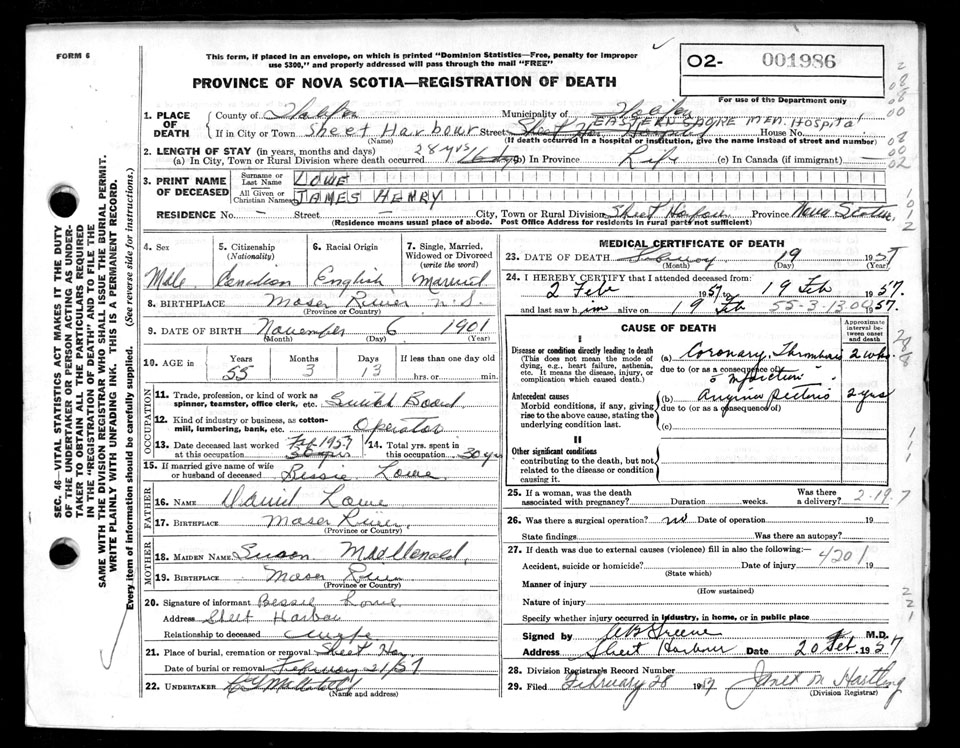 FORM 6
This form, if placed in an envelope, on which is printed "Dominion Statistics—Free, penalty for improper
use $300," and properly addressed will pass through the mail "FREE"
PROVINCE OF NOVA SCOTIA—REGISTRATION OF DEATH
O2- 001986
For use of the Department only
1. PLACE OF DEATH
County of Halifax Municipality of Halifax
EASTERN SHORE MEM. HOSPITAL
If in City or Town Sheet Harbour Street House No.
(Name) (If death occurred in a hospital or institution, give the name instead of street and number)
2. LENGTH OF STAY (in years, months and days)
(a) In City, Town or Rural Division where death occurred 28 yrs (b) in Province Life (c) In Canada (if immigrant) —
3. PRINT NAME OF DECEASED
Surname or Last Name LOWE
All Given or Christian Names JAMES HENRY
RESIDENCE No. — Street — City, Town or Rural Division Sheet Harbour Province Nova Scotia
(Residence means usual place of abode. Post Office Address for residents in rural parts not sufficient)
4. Sex Male
5. Citizenship (Nationality) Canadian
6. Racial Origin English
7. Single, Married, Widowed or Divorced (write the word) Married
8. BIRTHPLACE Moser River N.S.
(Province or Country)
9. DATE OF BIRTH November 6 1901
(Month) (Day) (Year)
10. AGE in Years 55 Months 3 Days 13 If less than one day
hrs. or min.
OCCUPATION
11. Trade, profession, or kind of work as
spinner, teamster, office clerk, etc. Switch Board
12. Kind of industry or business, as cotton-
mill, lumbering, bank, etc. Operator
13. Date deceased last worked at this occupation Feb 1957
14. Total yrs. spent in this occupation 30 yrs
15. If married give name of wife
or husband of deceased Bessie Lowe
FATHER
16. NAME David Lowe
17. BIRTHPLACE Moser River,
(Province or Country)
MOTHER
18. MAIDEN NAME Susan
19. BIRTHPLACE Moser River
(Province or Country)
20. Signature of informant Bessie Lowe
Address Sheet Harbour
Relationship to deceased
21. Place of burial, cremation or removal Sheet Har.
Date of burial or removal February 21/57
22. UNDERTAKER
(Name and address)
MEDICAL CERTIFICATE OF DEATH
23. DATE OF DEATH February 19 1957
(Month) (Day) (Year)
24. I HEREBY CERTIFY that I attended deceased from:
2 Feb 1957 to 19 Feb 1957.
and last saw him alive on 19 Feb 1957.
55-3-13 00
CAUSE OF DEATH
Approximate interval between onset and death
I
Disease or condition directly leading to death
(This does not mean the mode of
dying, e.g., heart failure, asthenia,
etc. It means the disease, injury, or
complication which caused death.)
(a) Coronary Thrombosis 2 wks.
due to (or as a consequence of)
Antecedent causes
Morbid conditions, if any, giving
rise to the above cause, stating the
underlying condition last.
(b) Angina Pectoris 2 yrs
due to (or as a consequence of)
(c)
II
Other significant conditions
contributing to the death, but not
related to the disease or condition
causing it.
25. If a woman, was the death
associated with pregnancy? Duration weeks. Was there a delivery?
2-19.7
26. Was there a surgical operation? no Date of operation 19
State findings Was there an autopsy?
27. If death was due to external causes (violence) fill in also the following:—
4201
Accident, suicide or homicide? Date of injury 19
(State which)
Manner of injury
(How sustained)
Nature of injury
Specify whether injury occurred in industry, in home, or in public place
Signed by Greene M.D.
Address Sheet Harbour Date 20 Feb. 1957
28. Division Registrar's Record Number
29. Filed February 28 1957 Janet M. Hartling
(Division Registrar)
SEC. 46—VITAL STATISTICS ACT MAKES IT THE DUTY
OF THE UNDERTAKER OR PERSON ACTING AS UNDER-
TAKER TO OBTAIN ALL THE PARTICULARS REQUIRED
IN THE "REGISTRATION OF DEATH" AND TO FILE THE
SAME WITH THE DIVISION REGISTRAR WHO SHALL ISSUE THE BURIAL PERMIT.
WRITE PLAINLY WITH UNFADING INK. THIS IS A PERMANENT RECORD.
Every item of information should be carefully supplied. (See reverse side for instructions.)